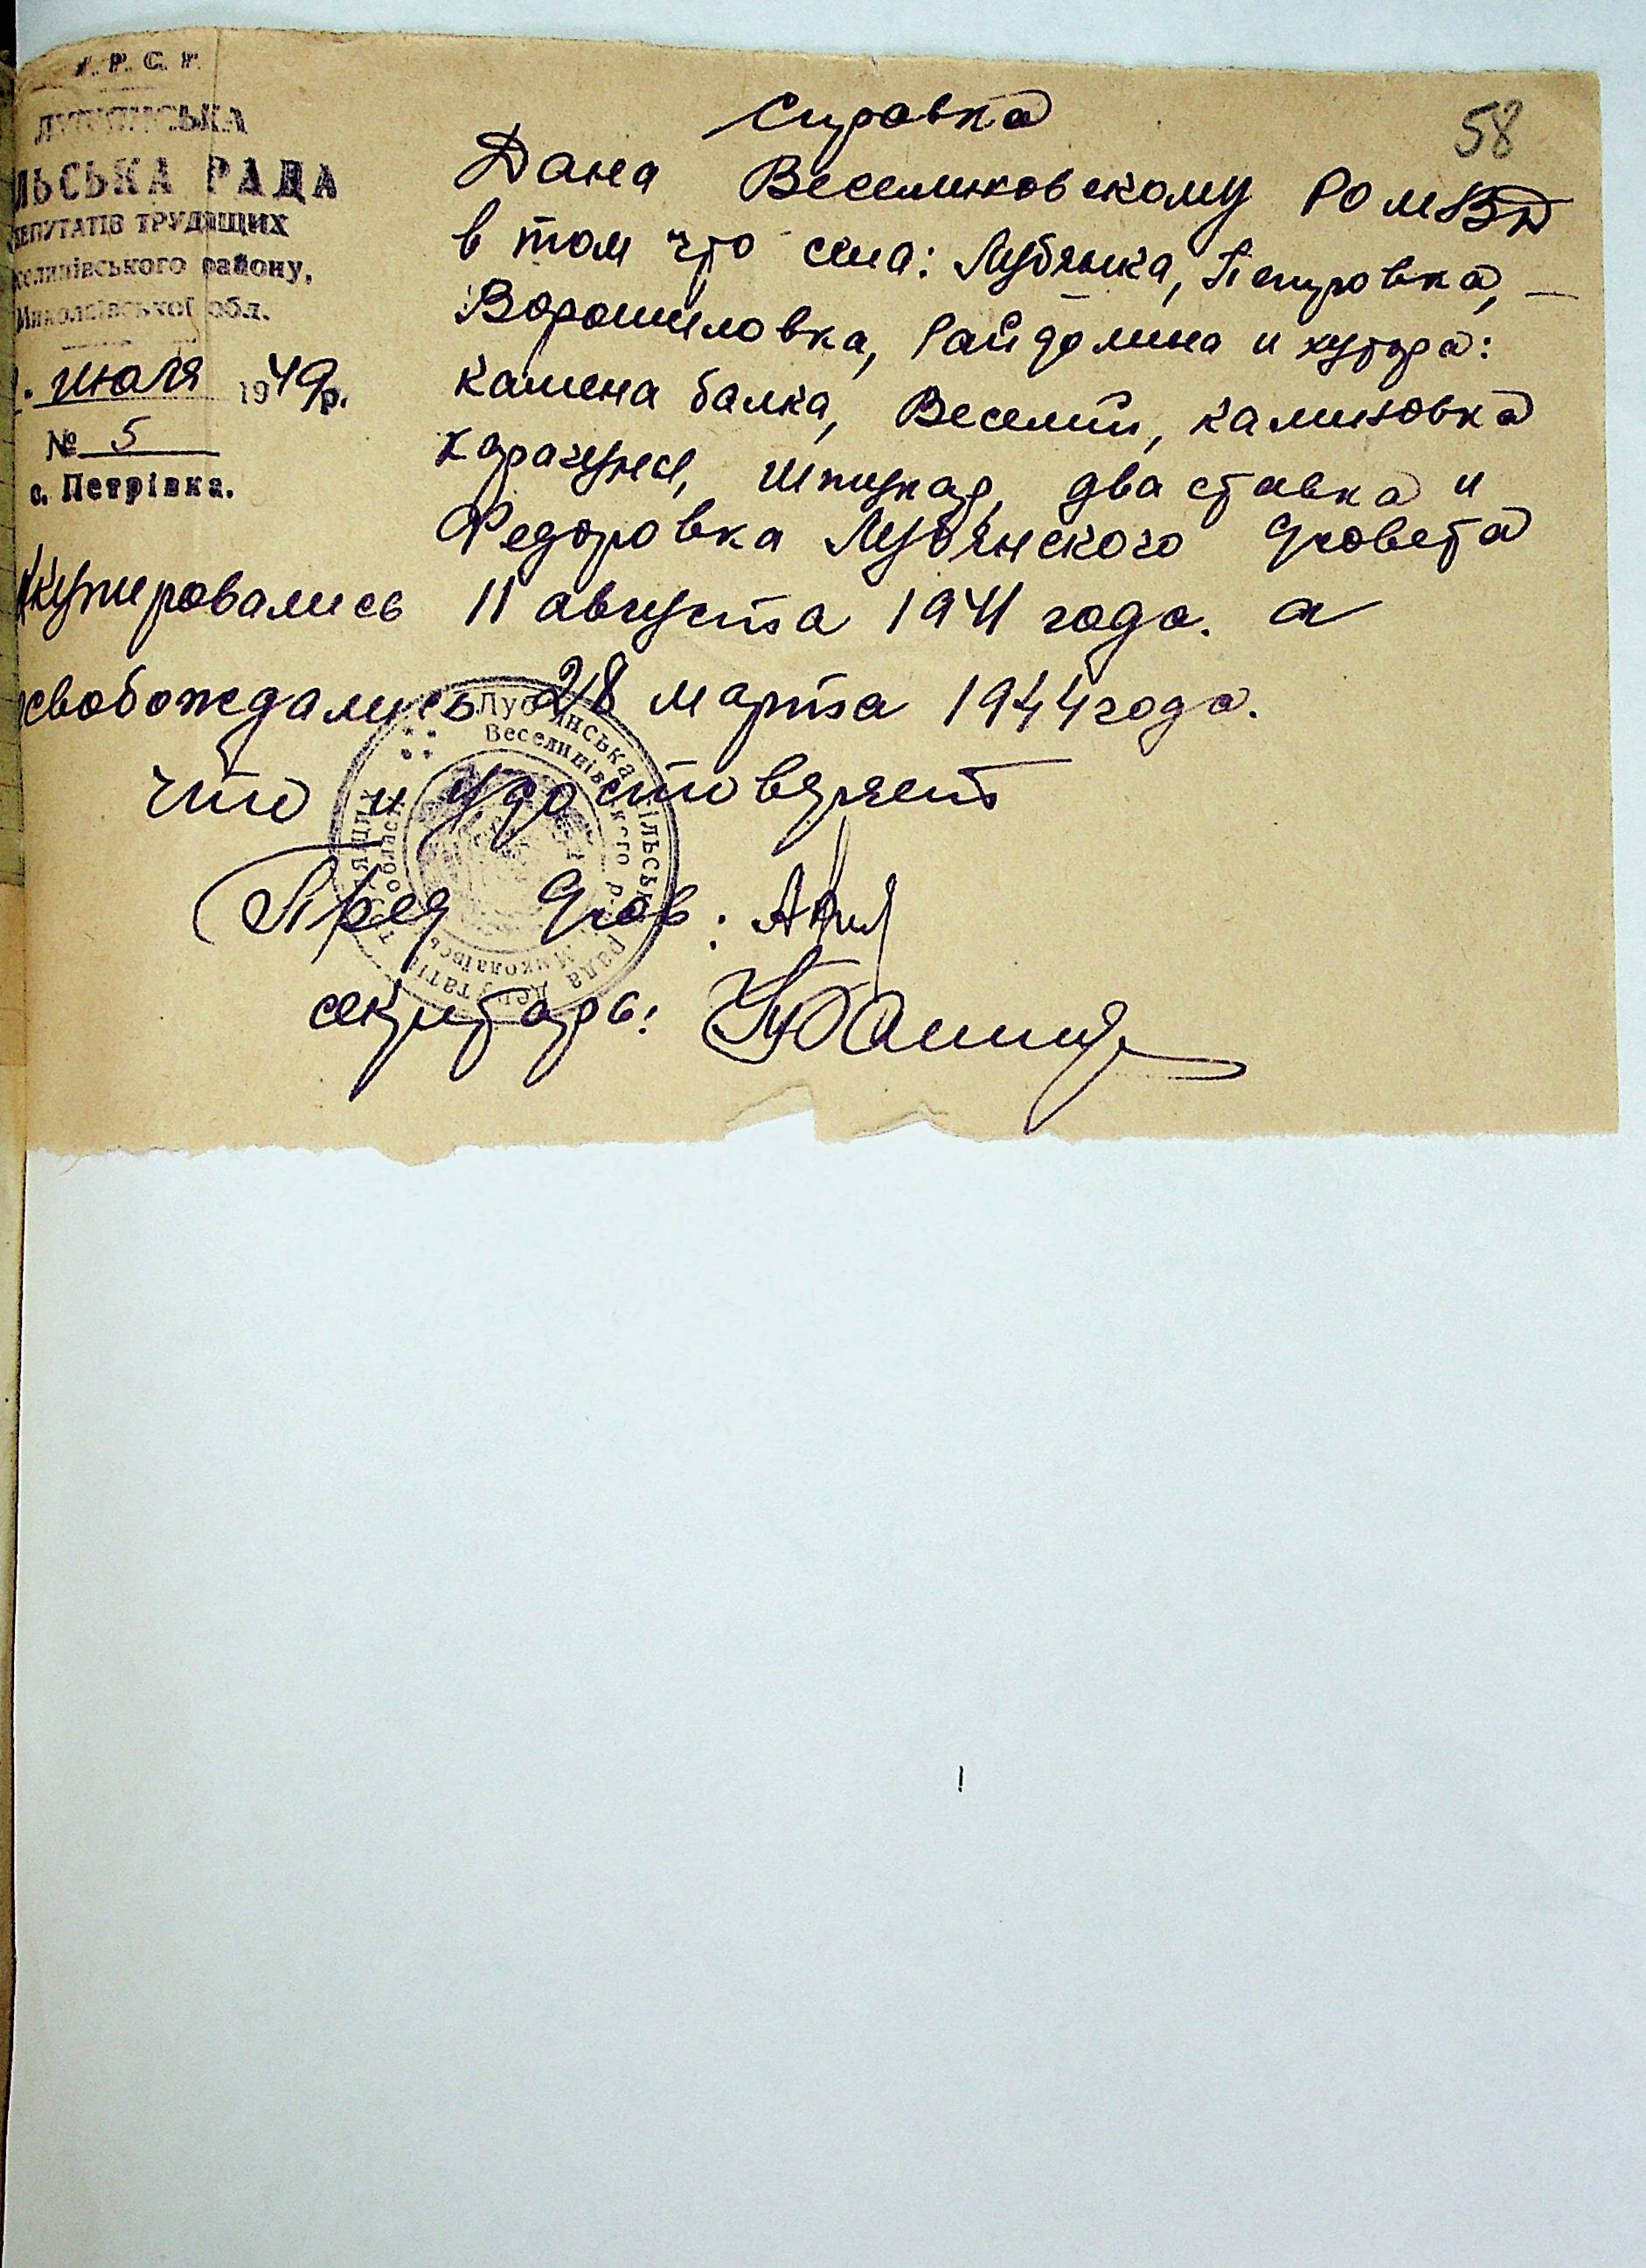 У. Р. С. Р.
ЛУБ'ЯНСЬКА
ЛЬСЬКА РАДА
ДЕПУТАТІВ ТРУДЯЩИХ
селинівського району,
Миколаївської обл.
июля 1949р.
№ 5
с. Петрівка.
58
Справка
Дана Веселиновскому РОМВД
в том что села: Лубянка, Петровка,
Ворошиловка, Райдолина и хутора:
камена балка, Веселый, калиновка
карачуна, Шпицкар, два ставка и
Федоровка Лубянского с/совета
окупировались 11 августа 1941 года. а
освобождались 28 марта 1944 года.
что и удостоверяет
Пред с/сов:
секритарь:
Луб'янська сільська рада депутатів
Веселинівського р Миколаївськ області